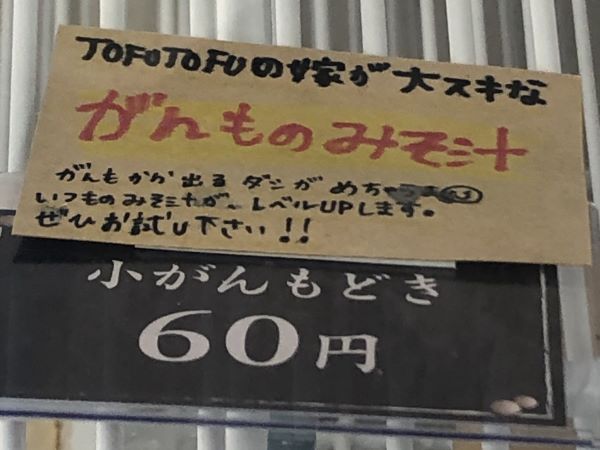 TOFUTOFUの嫁が大スキな
がんものみそ汁
がんもから出るダシがめちゃ
いつものみそ汁が、レベルUPします。
ぜひお試し下さい!!
小がんもどき
60円